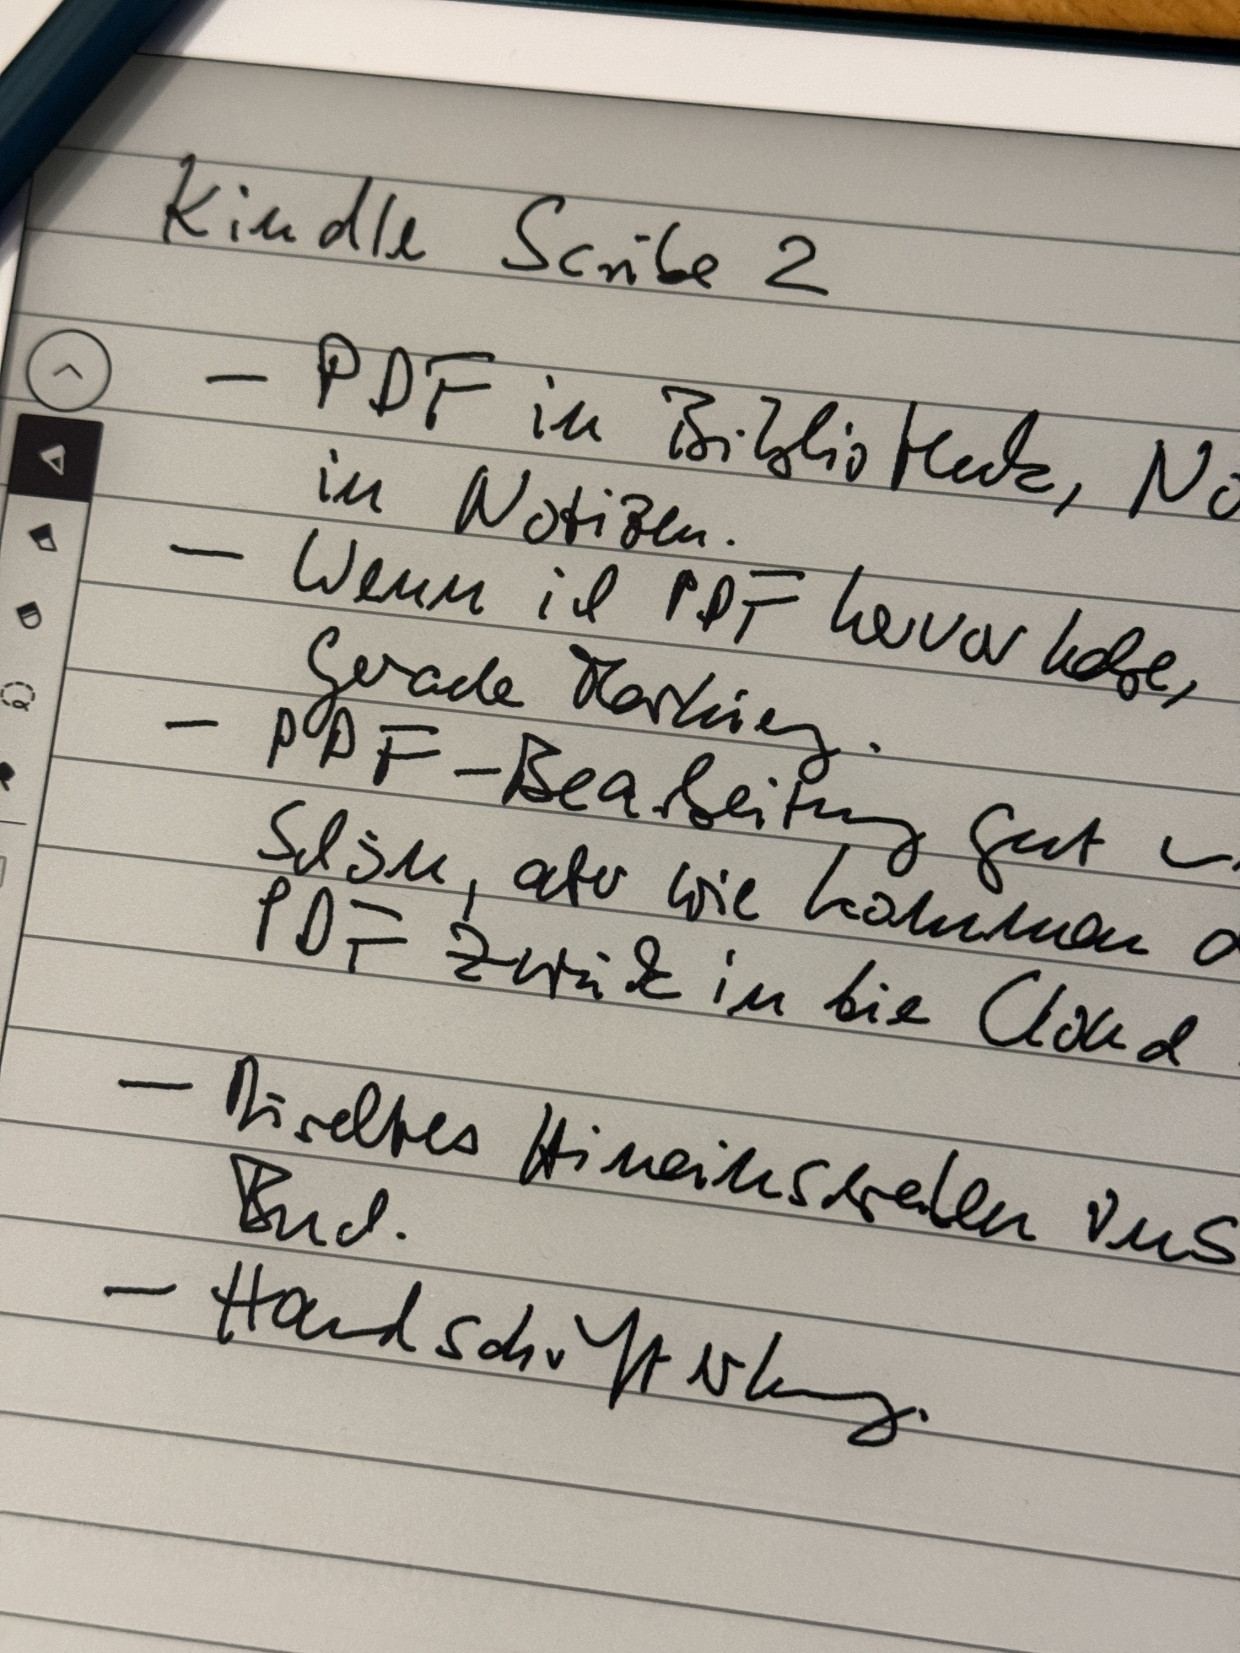 Kindle Scribe 2
– PDF in Bibliothek, No
in Notizen.
– Wenn ich PDF hervorhebe,
gerade Markierg.
– PDF-Bearbeitung gut u
schön, aber wie kommen d
PDF zurück in die Cloud
– Hineinschreiben ins
Buch.
– Handschrifterkng.